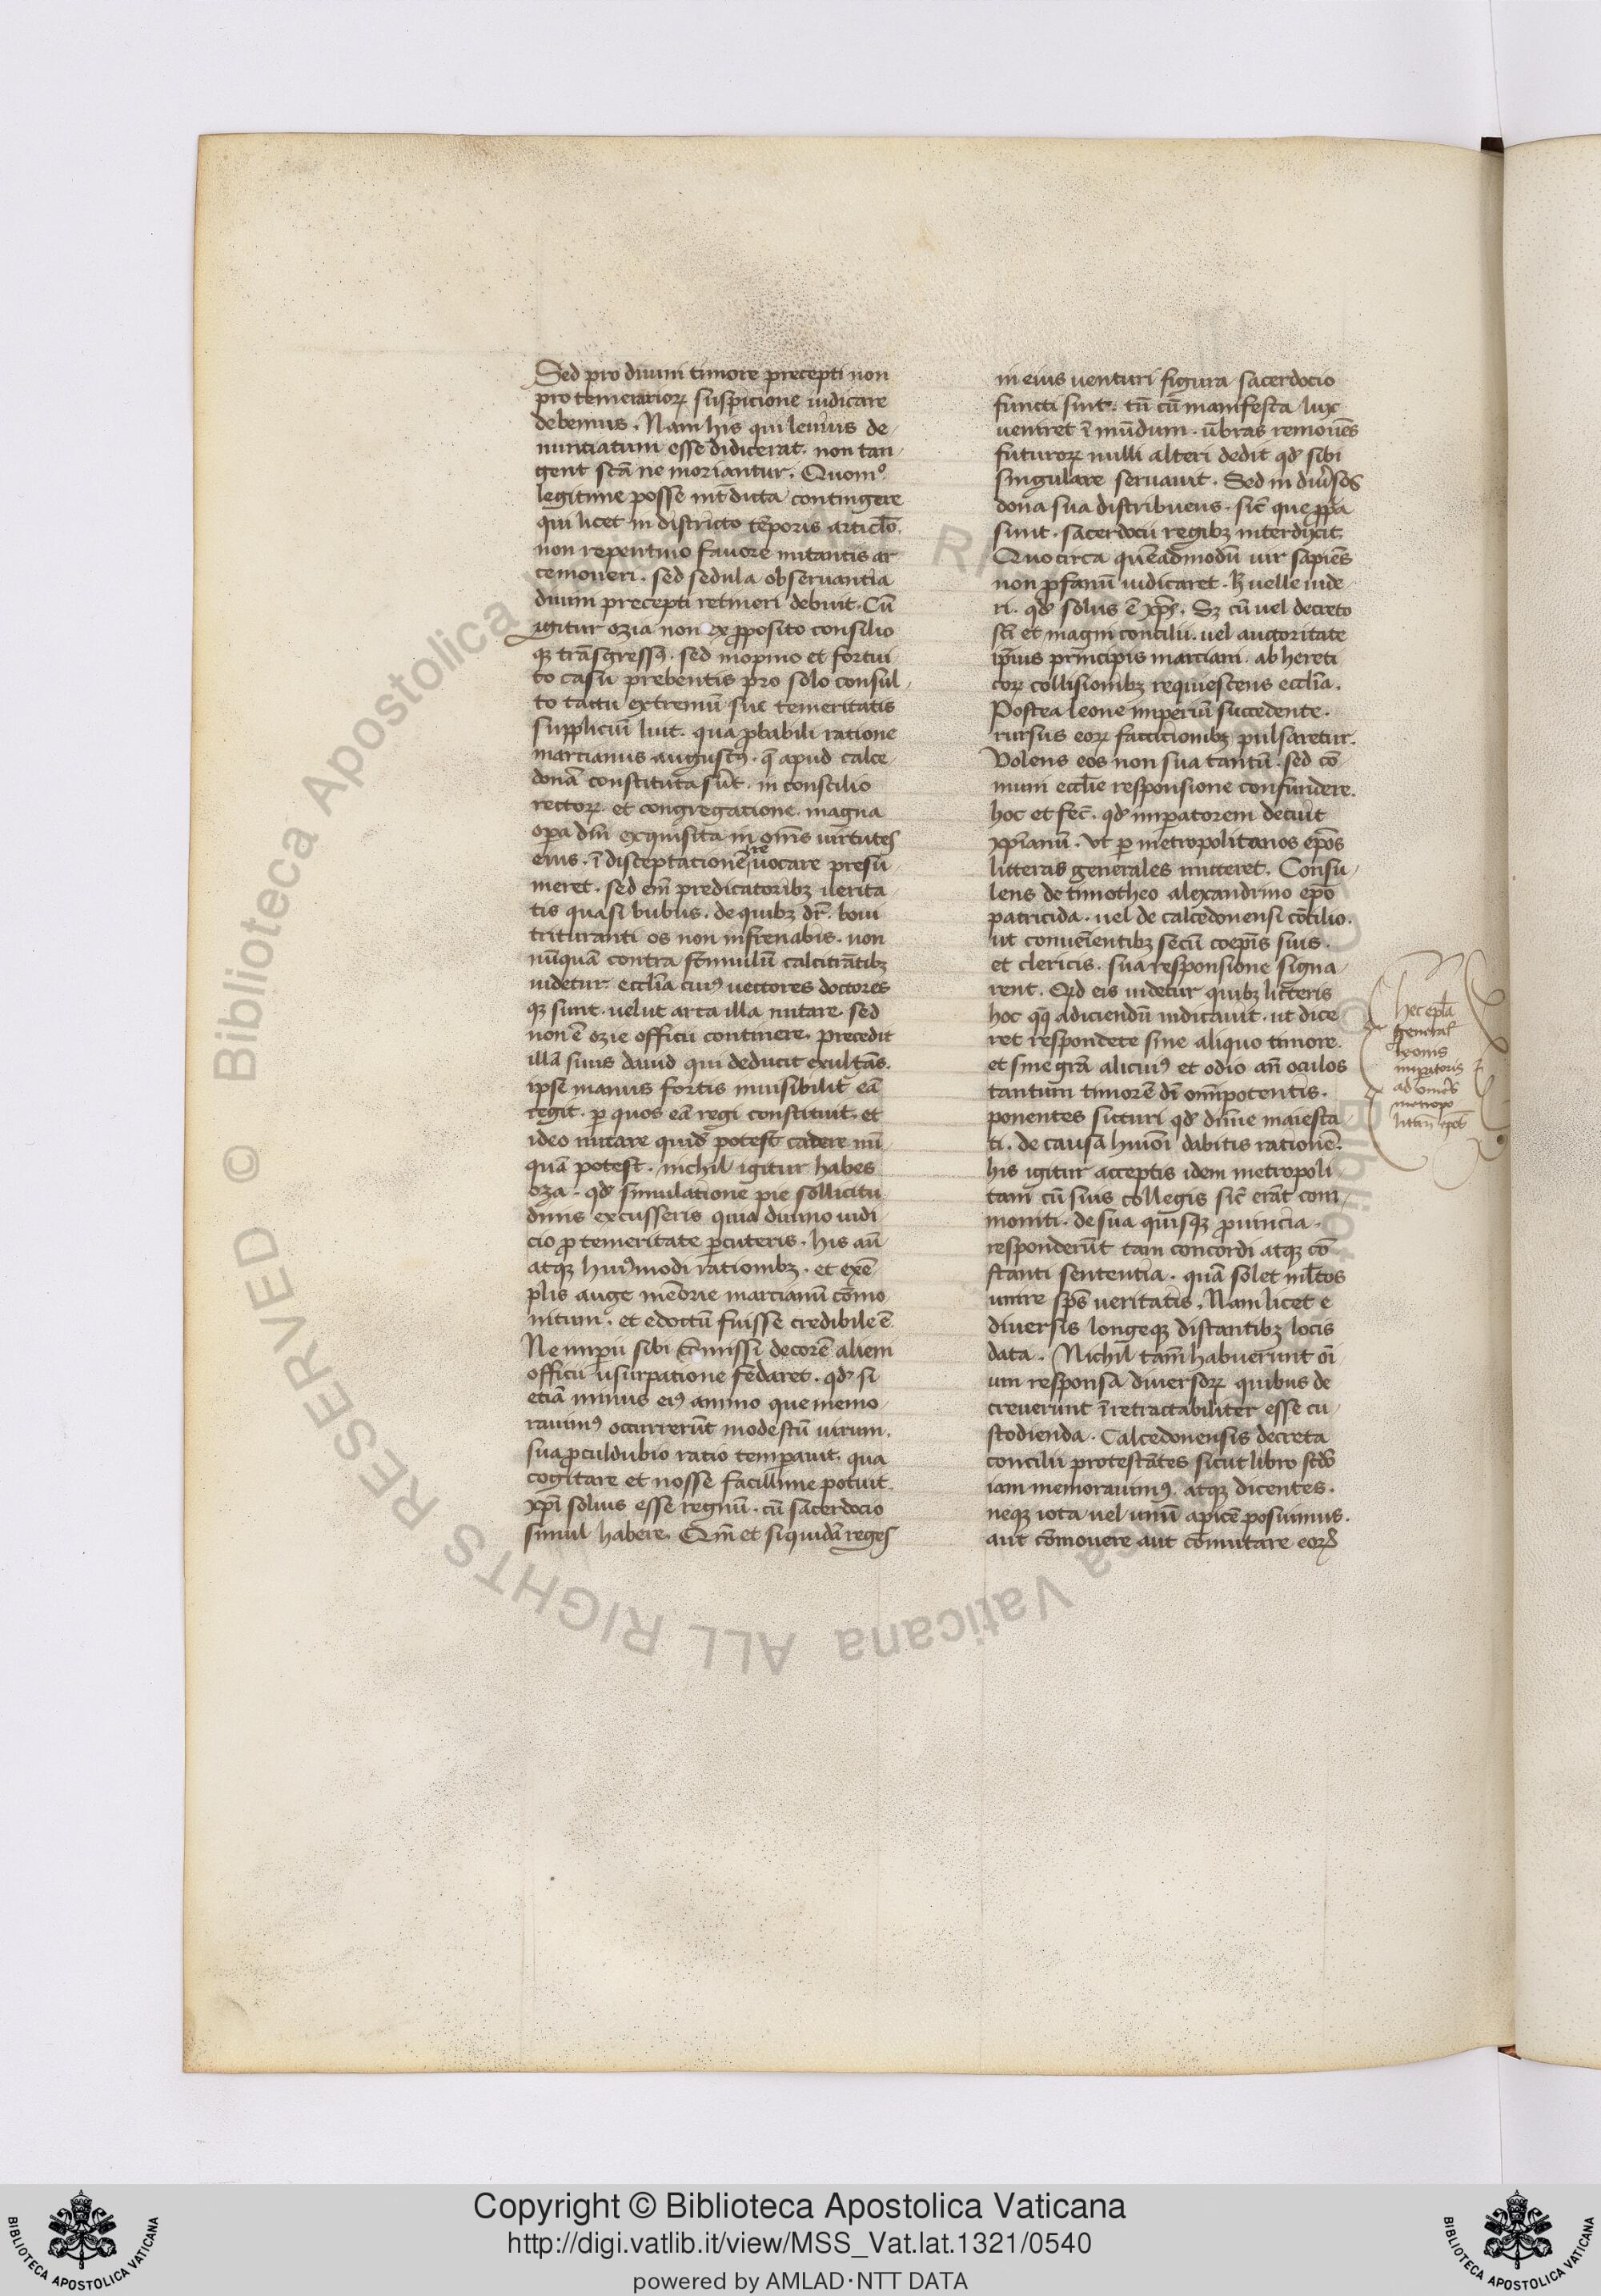 Sed pro diuini timore precepti non
pro temerarioꝝ suspicione iudicare
debemus. Nam his qui leuius de
nunciatum esse didicerat. non tan
gent scā ne moriantur. Quomo
legitime posse int̄dicta contingere
qui licet in districto tēporis articlo.
non repentino fauore nutantis ar
ce moueri. sed sedula obseruantia
diuini precepti retineri debuit. Cū
igitur ozia non ex ꝓposito consilio
qꝫ trāsgressꝰ. sed inopino et fortui
to casu prebentis pro solo consul
to tactu extremū sue temeritatis
suppliciū luit. qua ꝓbabili ratione
marcianus augustꝰ. q̄ apud calce
donā constituta sūt. in conscilio
rectoꝝ. et congregatione magna
opa dn̄i exquisita in om̄s uirtutes
eius. ī disceptationē reuocare presu
meret. sed em̄ predicatoribꝫ uerita
tis quasi bubus. de quibꝫ dr̄. boui
trituranti os non infrenabis. non
nūquā contra stimulū calcitrātibꝫ
uidetur eccl̄ia cuiꝰ uectores doctores
qꝫ sunt. uelut arca illa nutare. sed
non ē ozie officii continere. precedit
illā suus dauid qui deducit exultās.
ipse manus fortis inuisibilit̄ eā
regit. ꝑ quos eā regi constituit. et
ideo nutare quid potest cadere nū
quā potest. nichil igitur habes
oza. qd simulatione pie sollicitu
dinis excusseris quia diuino iudi
cio ꝓ temeritate ꝑcuteris. his aūt
atqꝫ huiꝰmodi rationibꝫ. et exē
plis auge mēorie marcianū cōmo
nitum. et edoctū fuisse credibile ē
Ne imperii sibi cōmissi decorē alieni
officii usurpatione fedaret. qd si
etiā minus eiꝰ animo que memo
rauimꝰ occurrerūt modestū uirum.
sua ꝓculdubio ratio temperauit. qua
cogitare et nosse facillime potuit
xp̄i solius esse regnū. cū sacerdocio
simul habere. Qm̄ et siquidā reges
in eius uenturi figura sacerdocio
functi sint. tn̄ cū manifesta lux
ueniret ī mūdum. ūbras remouēs
futuroꝝ nulli alteri dedit qd sibi
singulare seruauit. Sed in diu̓sos
dona sua distribuens. sic̄ que ꝓpa
sunt. sacerdocii regibꝫ interdixit
Quocirca quēadmodū uir sapiēs
non ꝓfanū iudicaret. h̄ uelle uide
ri. qd solus ē xp̄s. Sꝫ cū uel decreto
sc̄i et magni concilii. uel auctoritate
ip̄ius principis marciani. ab hereti
coꝝ collisionibꝫ requiescens eccl̄ia.
Postea leone imperiū succedente.
rursus eoꝝ factionibꝫ pulsaretur.
Volens eos non sua tantū. sed cō
muni eccl̄ie responsione confundere.
hoc et fec̄. qd imꝑatorem decuit
xp̄ianū. Ut ꝑ metropolitanos ep̄os
litteras generales mitteret. Consu
lens de timotheo alexandrino ep̄o
patricida. uel de calcedonensi cōcilio.
ut conueīentibꝫ secū coep̄is suis.
et clericis. sua responsione signa
rent. Qd eis uidetur quibꝫ litteris
hoc qꝫ adiciendū iudicauit. ut dice
ret respondete sine aliquo timore.
et sine gr̄a alicuiꝰ et odio an̄ oculos
tantum timorē dei om̄ipotentis.
ponentes scituri qd diuine maiesta
ti. de causa huiōi dabitis rationē.
his igitur acceptis idem metropoli
tani cū suis collegis sic̄ erāt com
moniti. de sua quisqꝫ ꝓuincia.
responderūt tam concordi atqꝫ cō
stanti sententia. quā solet ml̄tos
unire sp̄s ueritatis. Nam licet e
diuersis longeqꝫ distantibꝫ locis
data. Nichil tam̄ habuerunt oī
um responsa diuersoꝝ quibus de
creuerunt īretractabiliter esse cu
stodienda. Calcedonensis decreta
concilii protestātes sicut libro scd̄o
iam memorauimꝰ. atqꝫ dicentes.
neqꝫ iota uel unū apicē posuimus.
aut cōmouere aut cōmutare eoꝝd
hec epl̄a
general̄
leonis
imꝑatoris
ad omēs
metropo
litan̄ ep̄os
© Biblioteca Apostolica Vaticana ALL RIGHTS RESERVED
Copyright © Biblioteca Apostolica Vaticana
http://digi.vatlib.it/view/MSS_Vat.lat.1321/0540
powered by AMLAD·NTT DATA
BIBLIOTECA APOSTOLICA VATICANA
BIBLIOTECA APOSTOLICA VATICANA